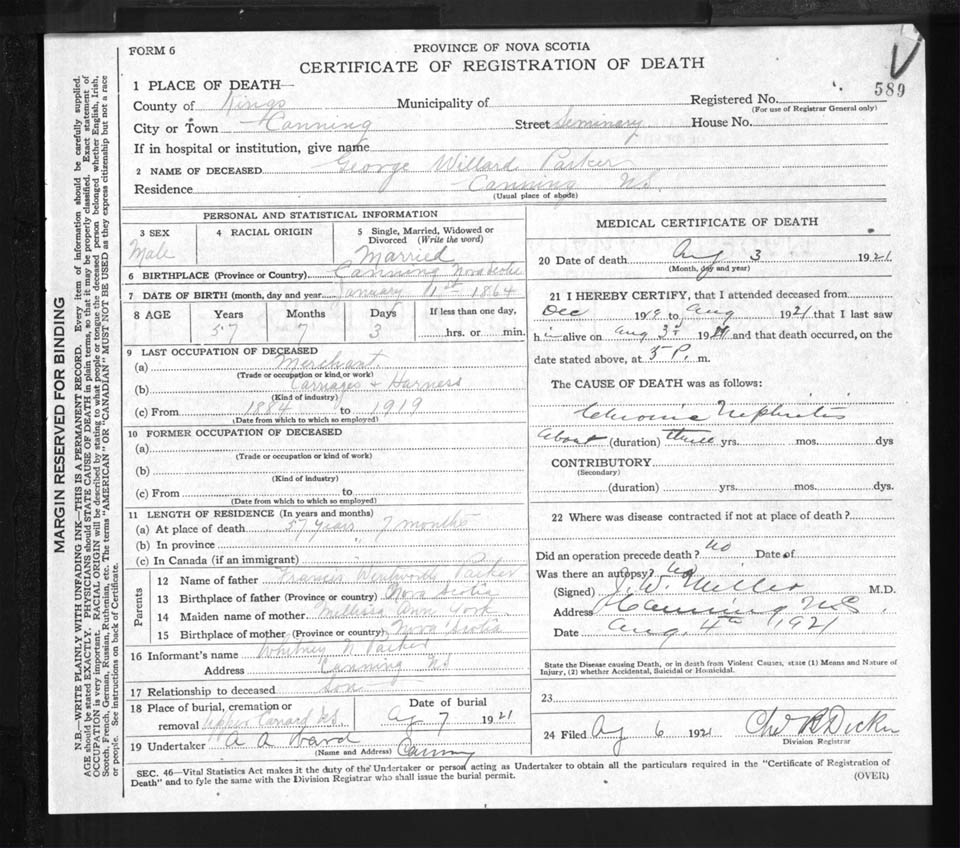 FORM 6
PROVINCE OF NOVA SCOTIA
CERTIFICATE OF REGISTRATION OF DEATH
589
1 PLACE OF DEATH—
County of Kings Municipality of Registered No.
(For use of Registrar General only)
City or Town Canning Street Seminary House No.
If in hospital or institution, give name
2 NAME OF DECEASED George Willard Parker
Residence Canning N.S.
(Usual place of abode)
PERSONAL AND STATISTICAL INFORMATION
3 SEX
Male
4 RACIAL ORIGIN
5 Single, Married, Widowed or Divorced (Write the word)
Married
6 BIRTHPLACE (Province or Country) Canning Nova Scotia
7 DATE OF BIRTH (month, day and year January 1st 1864
8 AGE Years Months Days If less than one day,
57 7 3 hrs. or min.
9 LAST OCCUPATION OF DECEASED
(a) Merchant
(Trade or occupation or kind or work)
(b) Carriages & Harness
(Kind of industry)
(c) From 1884 to 1919
(Date from which to which so employed)
10 FORMER OCCUPATION OF DECEASED
(a)
(Trade or occupation or kind of work)
(b)
(Kind of industry)
(c) From to
(Date from which to which so employed)
11 LENGTH OF RESIDENCE (In years and months)
(a) At place of death 57 years 7 months
(b) In province " "
(c) In Canada (if an immigrant)
Parents
12 Name of father Francis Wentworth Parker
13 Birthplace of father (Province or country) Nova Scotia
14 Maiden name of mother Millissa Ann York
15 Birthplace of mother (Province or country) Nova Scotia
16 Informant's name Whitney N Parker
Address Canning NS
17 Relationship to deceased Son
18 Place of burial, cremation or removal Upper Canard N.S. Date of burial Ag 7 1921
19 Undertaker A A Ward Canning
(Name and Address)
MEDICAL CERTIFICATE OF DEATH
20 Date of death Aug 3 1921
(Month, day and year)
21 I HEREBY CERTIFY, that I attended deceased from
Dec 1919 to Aug 1921 that I last saw
him alive on Aug 3d 1921 and that death occurred, on the
date stated above, at 5 P. m.
The CAUSE OF DEATH was as follows:
Chronic Nephritis
About (duration) three yrs. mos. dys
CONTRIBUTORY
(Secondary)
(duration) yrs. mos. dys.
22 Where was disease contracted if not at place of death?
Did an operation precede death? No Date of
Was there an autopsy? No
(Signed) J. W. Miller M.D.
Address Canning N.S.
Date Aug. 4th 1921
State the Disease causing Death, or in death from Violent Causes, state (1) Means and Nature of Injury, (2) whether Accidental, Suicidal or Homicidal.
23
24 Filed Ag 6 1921 Division Registrar
SEC. 46—Vital Statistics Act makes it the duty of the Undertaker or person acting as Undertaker to obtain all the particulars required in the "Certificate of Registration of
Death" and to fyle the same with the Division Registrar who shall issue the burial permit. (OVER)
MARGIN RESERVED FOR BINDING
N.B.—WRITE PLAINLY WITH UNFADING INK—THIS IS A PERMANENT RECORD. Every item of information should be carefully supplied.
AGE should be stated EXACTLY. PHYSICIANS should STATE CAUSE OF DEATH in plain terms, so that it may be properly classified. Exact statement of
OCCUPATION is very important. RACIAL ORIGIN will be described by stating to what people or tongue the deceased person belonged whether English, Irish,
Scotch, French, German, Russian, Ruthenian, etc. The terms "AMERICAN" OR "CANADIAN" MUST NOT BE USED as they express citizenship but not a race
or people. See instructions on back of Certificate.